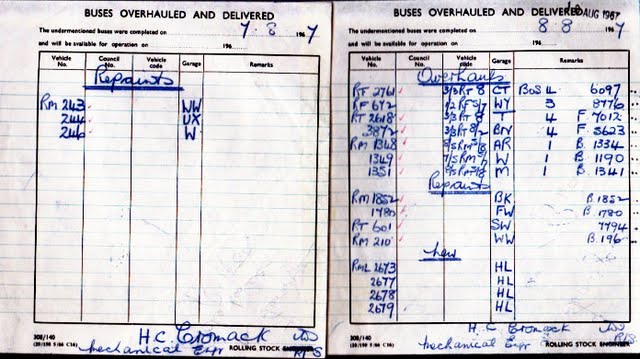 BUSES OVERHAULED AND DELIVERED
The undermentioned buses were completed on 7.8. 1967
and will be available for operation on 196
Vehicle No. Council No. Vehicle code Garage Remarks
Repaints
RM 243 WW
244 UX
246 W
H.C. Cromack
Mechanical Engr ROLLING STOCK
308/140
BUSES OVERHAULED AND DELIVERED AUG 1967
The undermentioned buses were completed on 8 8 1967
and will be available for operation on 196
Vehicle No. Council No. Vehicle code Garage Remarks
Overhauls
RT 2761 3/3RT 8 CT BoS 4 6097
RF 672 WY 3 8776
RT 2618 3/3RT 8 T 4 F 7012
3872 3/3RT 8/2 BN 4 F 3623
RM 1348 AR 1 B. 1334
1349 W 1 B 1190
1351 M 1 B. 1341
Repaints
RM 1852 BK B.1852
1780 FW B.1780
RT 601 SW 7794
RM 210 WW B.196
New
RML 2673 HL
2677 HL
2678 HL
2679 HL
308/140
H.C. Cromack
Mechanical Engr ROLLING STOCK